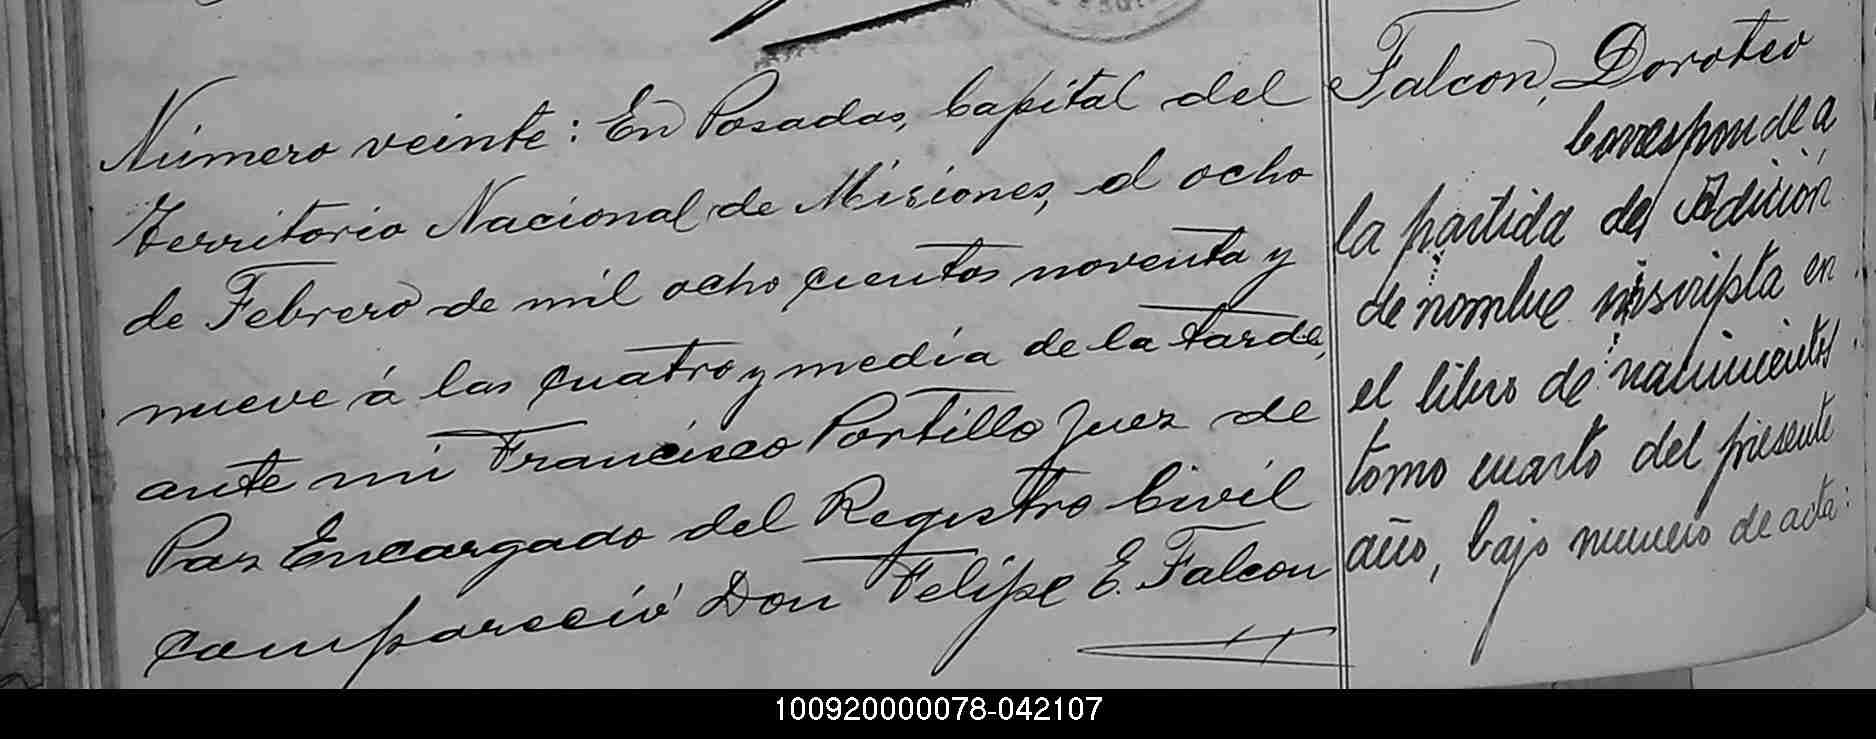 Número veinte: En Posadas, Capital del
Territorio Nacional de Misiones, el ocho
de Febrero de mil ocho cientos noventa y
nueve á las cuatro y media de la tarde,
ante mi Francisco Portillo Juez de
Paz Encargado del Registro Civil
compareció Don Felipe E. Falcon
Falcon, Doroteo
Corresponde a
la partida de Adición
de nombre inscripta en
el libro de nacimientos
tomo cuarto del presente
año, bajo numero de acta:
100920000078-042107